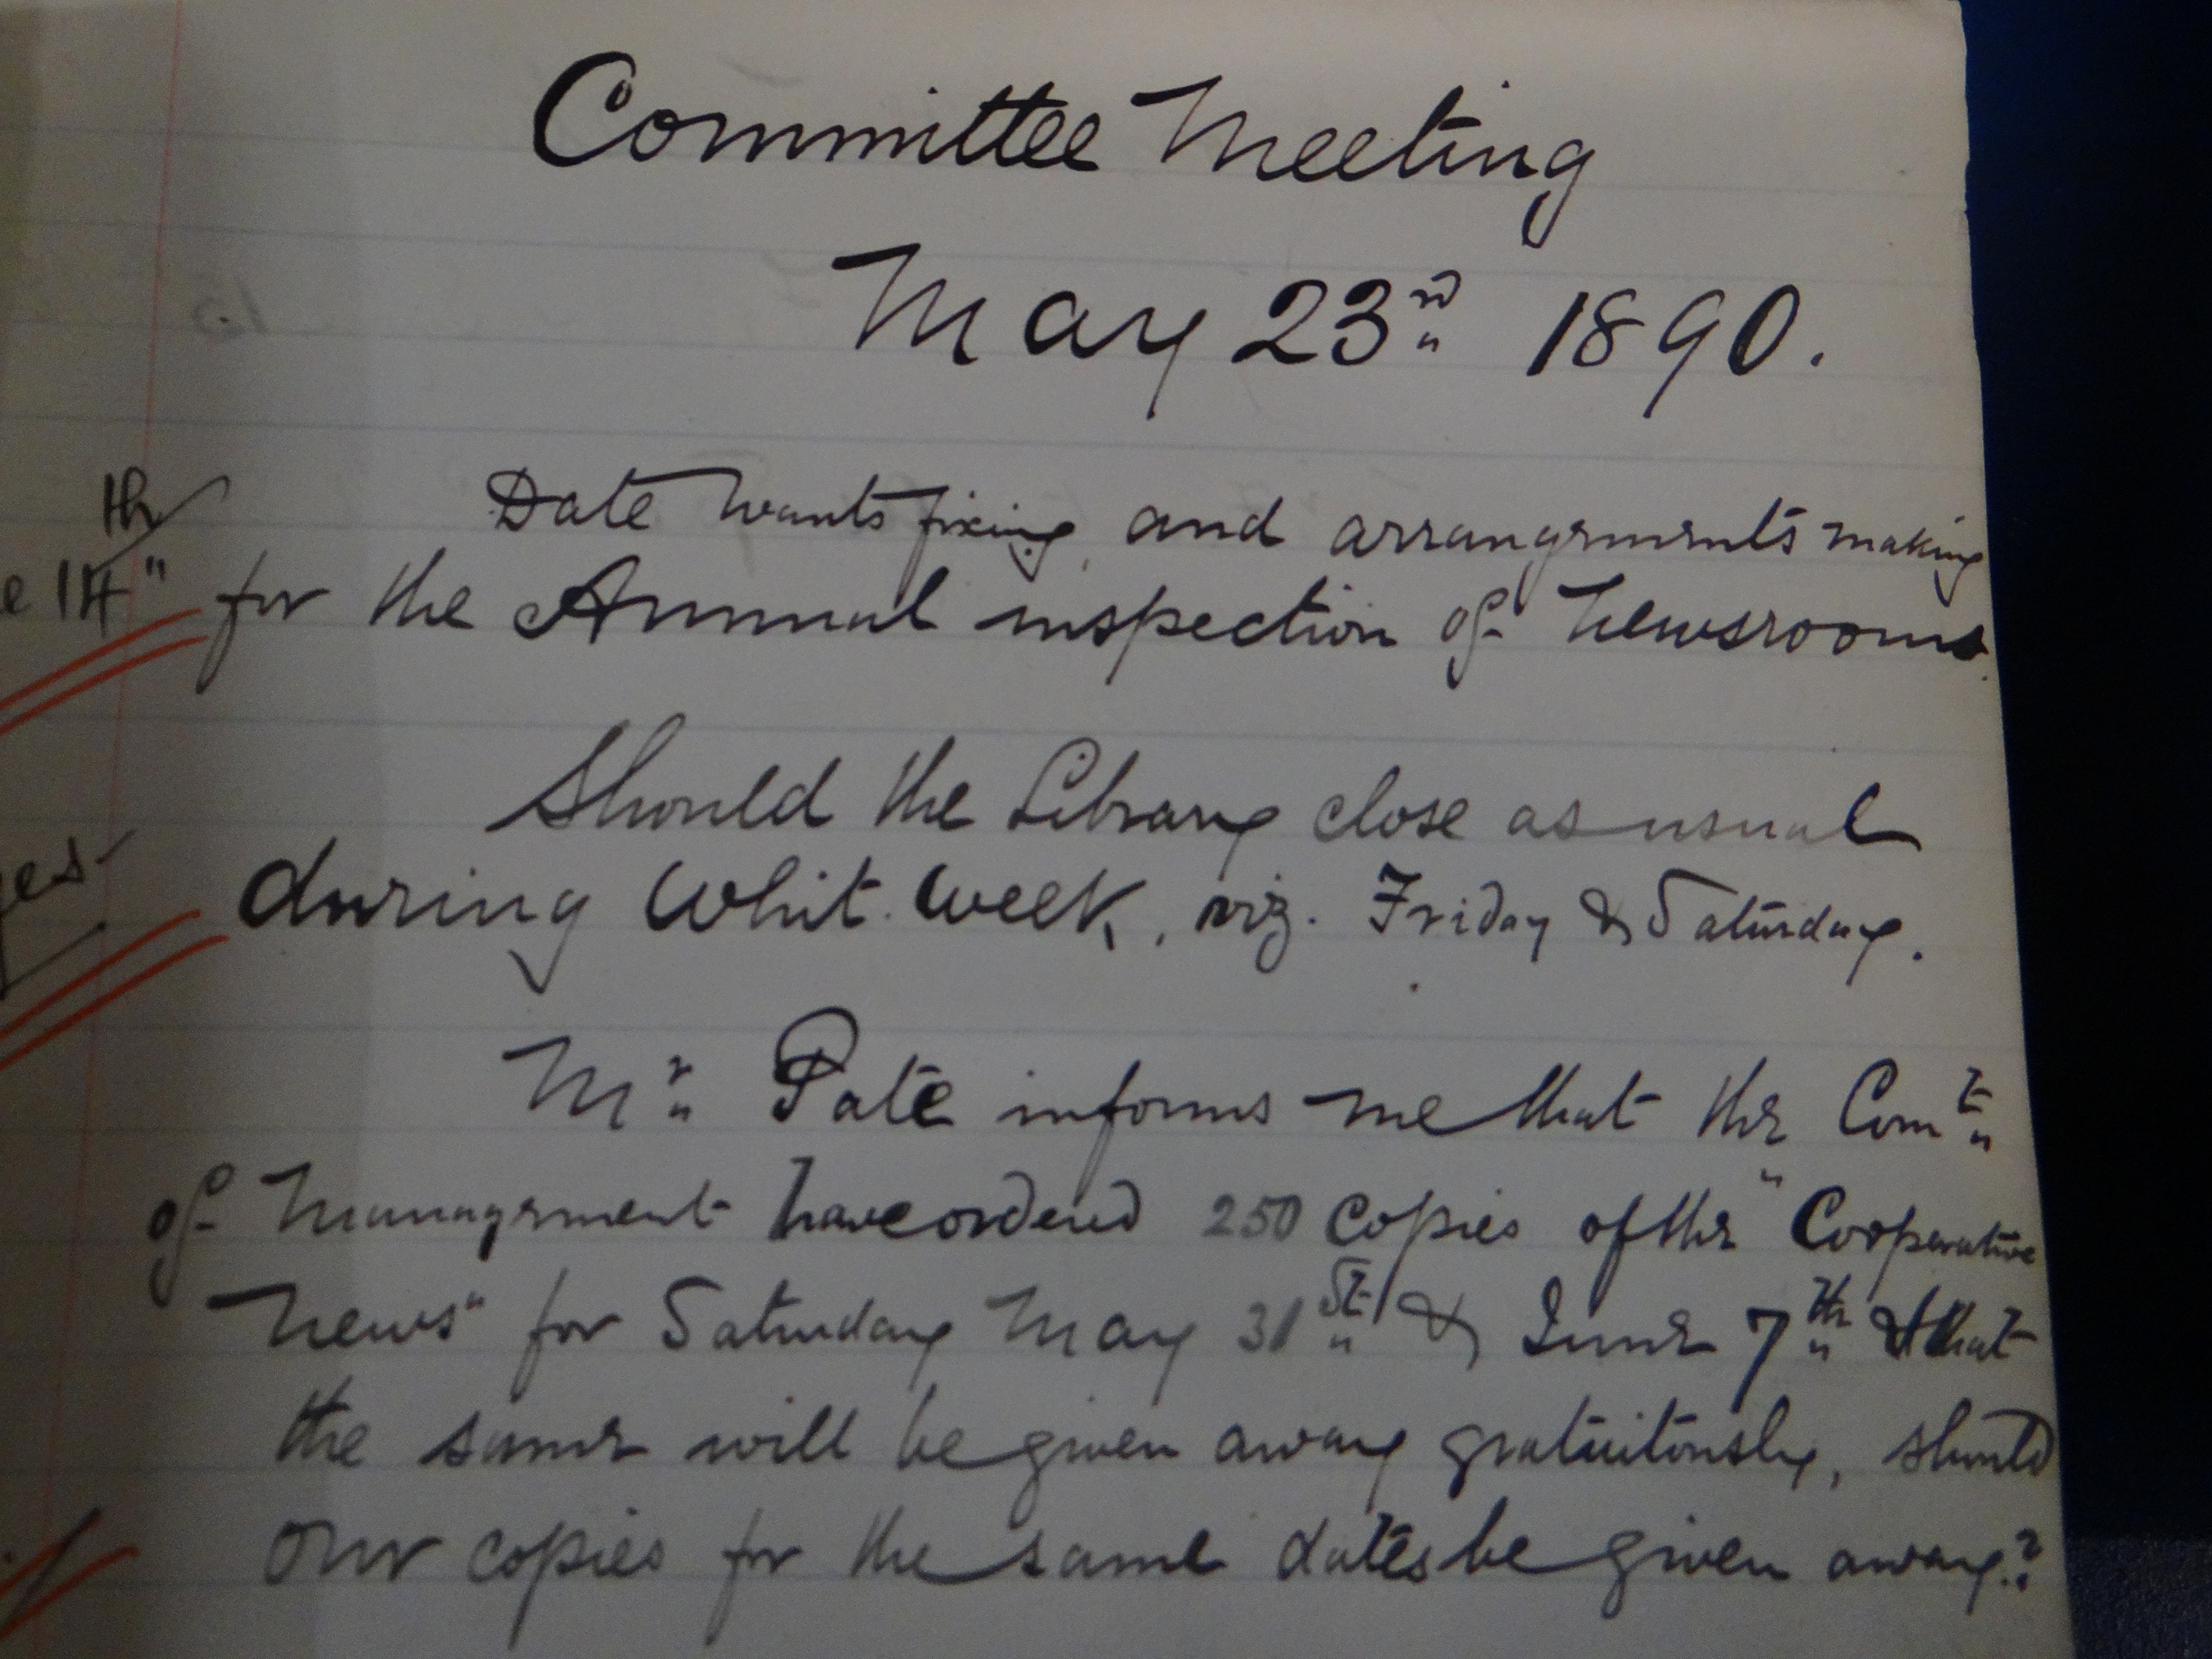 Committee Meeting
May 23rd 1890.
Date wants fixing, and arrangements making
14th for the Annual inspection of Newsrooms.
Should the Library close as usual
during Whit. Week, viz. Friday & Saturday.
Mr Pate informs me that the Comte
of Management have ordered 250 copies of the "Cooperative
News" for Saturday May 31st & June 7th & that
the same will be given away gratuitously, should
our copies for the same dates be given away?